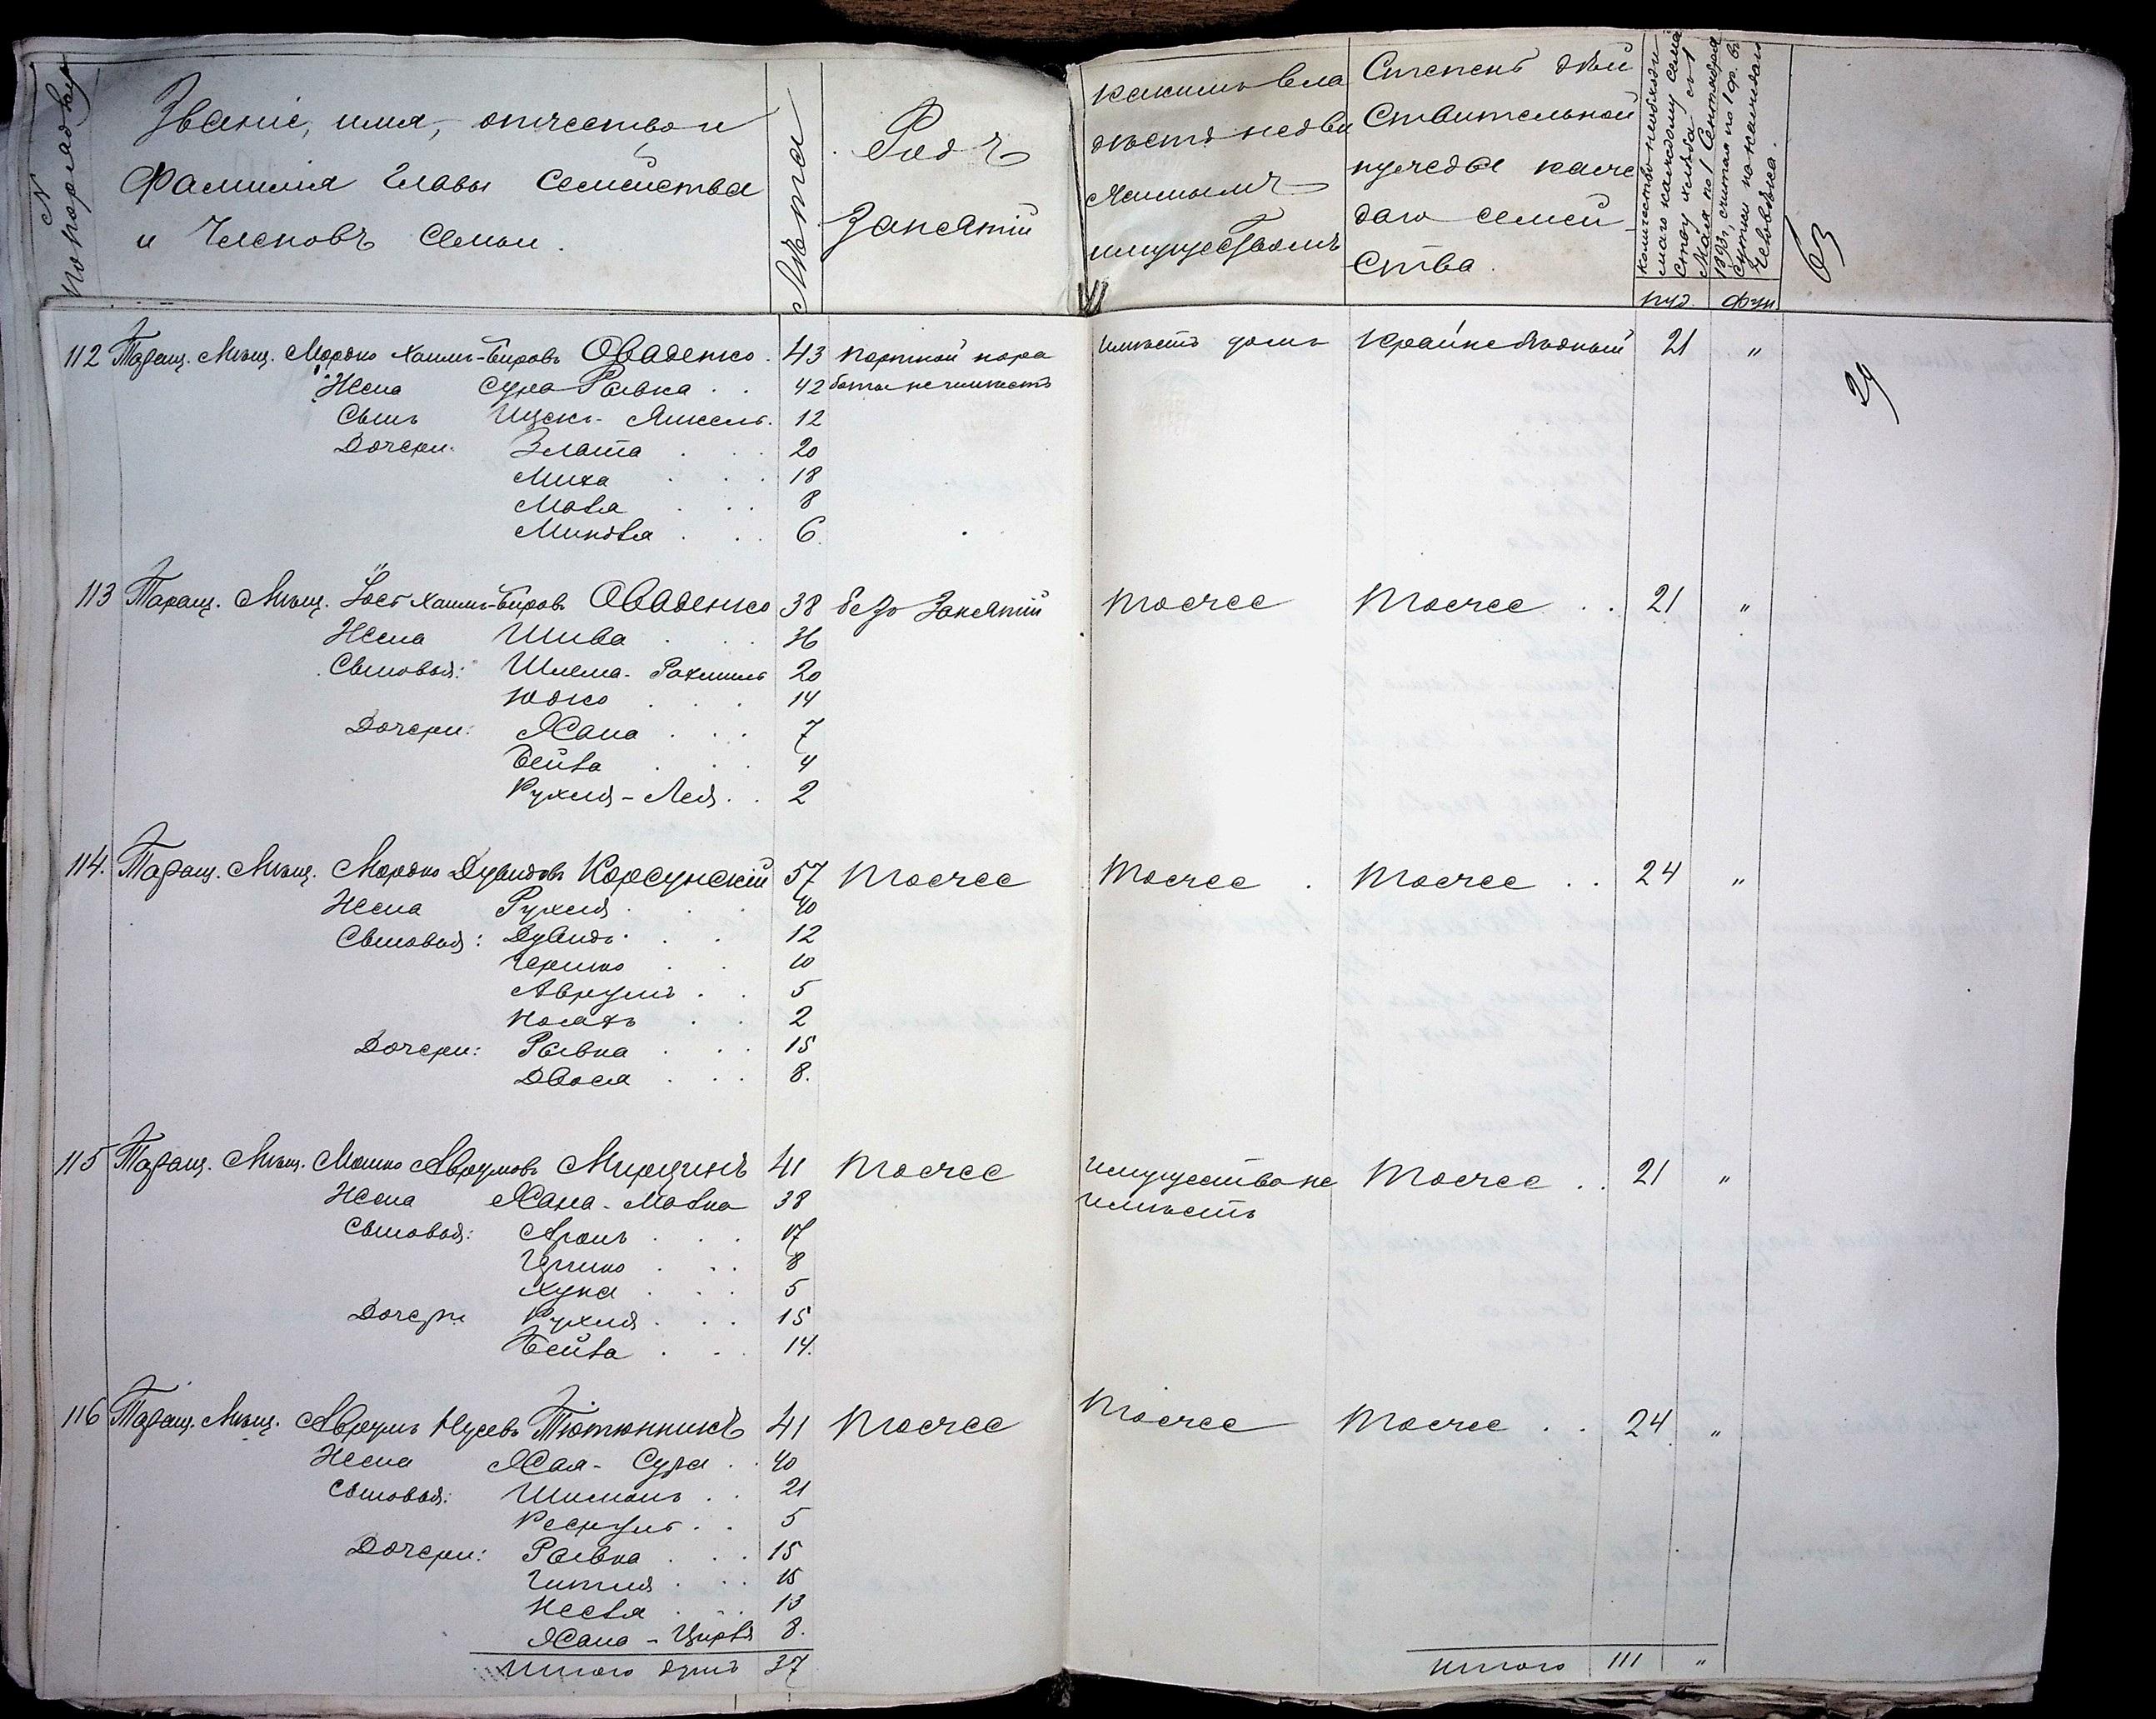 № по порядку
Званіе, имя, отчество и
фамилія главы семейства
и членовъ семьи.
Лѣта
Родъ
занятій
какимъ вла
дѣетъ недви
жимымъ
имуществомъ
Степень дѣй
ствительной
нужды каж
даго семей
ства.
Количество необходи
маго каждому семей
ству хлѣба съ 1
Мая по 1 Сентября
1893 г., считая по 1 ф. въ
сутки на каждаго
человѣка.
пуд. фун
63
29
112 Таращ. Мѣщ. Мордко Хаимъ-Беровъ Оваденко. 43 портной пора имѣетъ домъ крайнебѣдный 21 "
Жена Сура Ривка . . 42 боты не имѣетъ
Сынъ Ицекъ-Янкель. 12
Дочери: Злата . . . 20
Миха . . . 18
Мотя . . . 8
Миндля . . . 6
113 Таращ. Мѣщ. Іось Хаимъ-Беровъ Оваденко 38 безъ занятій тоже тоже . . 21 "
Жена Шива . . 36
Сыновья: Шлема-Рахмиль 20
Юдко . . . 14
Дочери: Хана . . . 7
Бейла . . . 4
Рухля-Лея . . 2
114. Таращ. Мѣщ. Мордко Дувидовъ Корсунскій 57 тоже тоже . тоже . . 24 "
Жена Рухля . . . 40
Сыновья: Дувидъ . . . 12
Гершко . . 10
Аврумъ . . 5
Носахъ . . 2
Дочери: Ривка . . . 15
Двося . . . 8.
115 Таращ. Мѣщ. Мошко Аврумовъ 41 тоже имущества не тоже . . 21 "
Жена Хана-Малка 38 имѣетъ
Сыновья: Аронъ . . . 17
Ицко . . . 8
Хуна . . . 5
Дочери Рухля . . . 15
Бейла . . . 14.
116 Таращ. Мѣщ. Аврумъ Нусевъ Тютюнникъ 41 тоже тоже тоже . . 24 "
Жена Хая-Сура . . 40
Сыновья: Шимонъ . . 21
5
Дочери: Ривка . . . 15
Гитля . . . 15
Несля . . . 13
Хана-Цирля 8.
Итого душъ 37 Итого 111 "